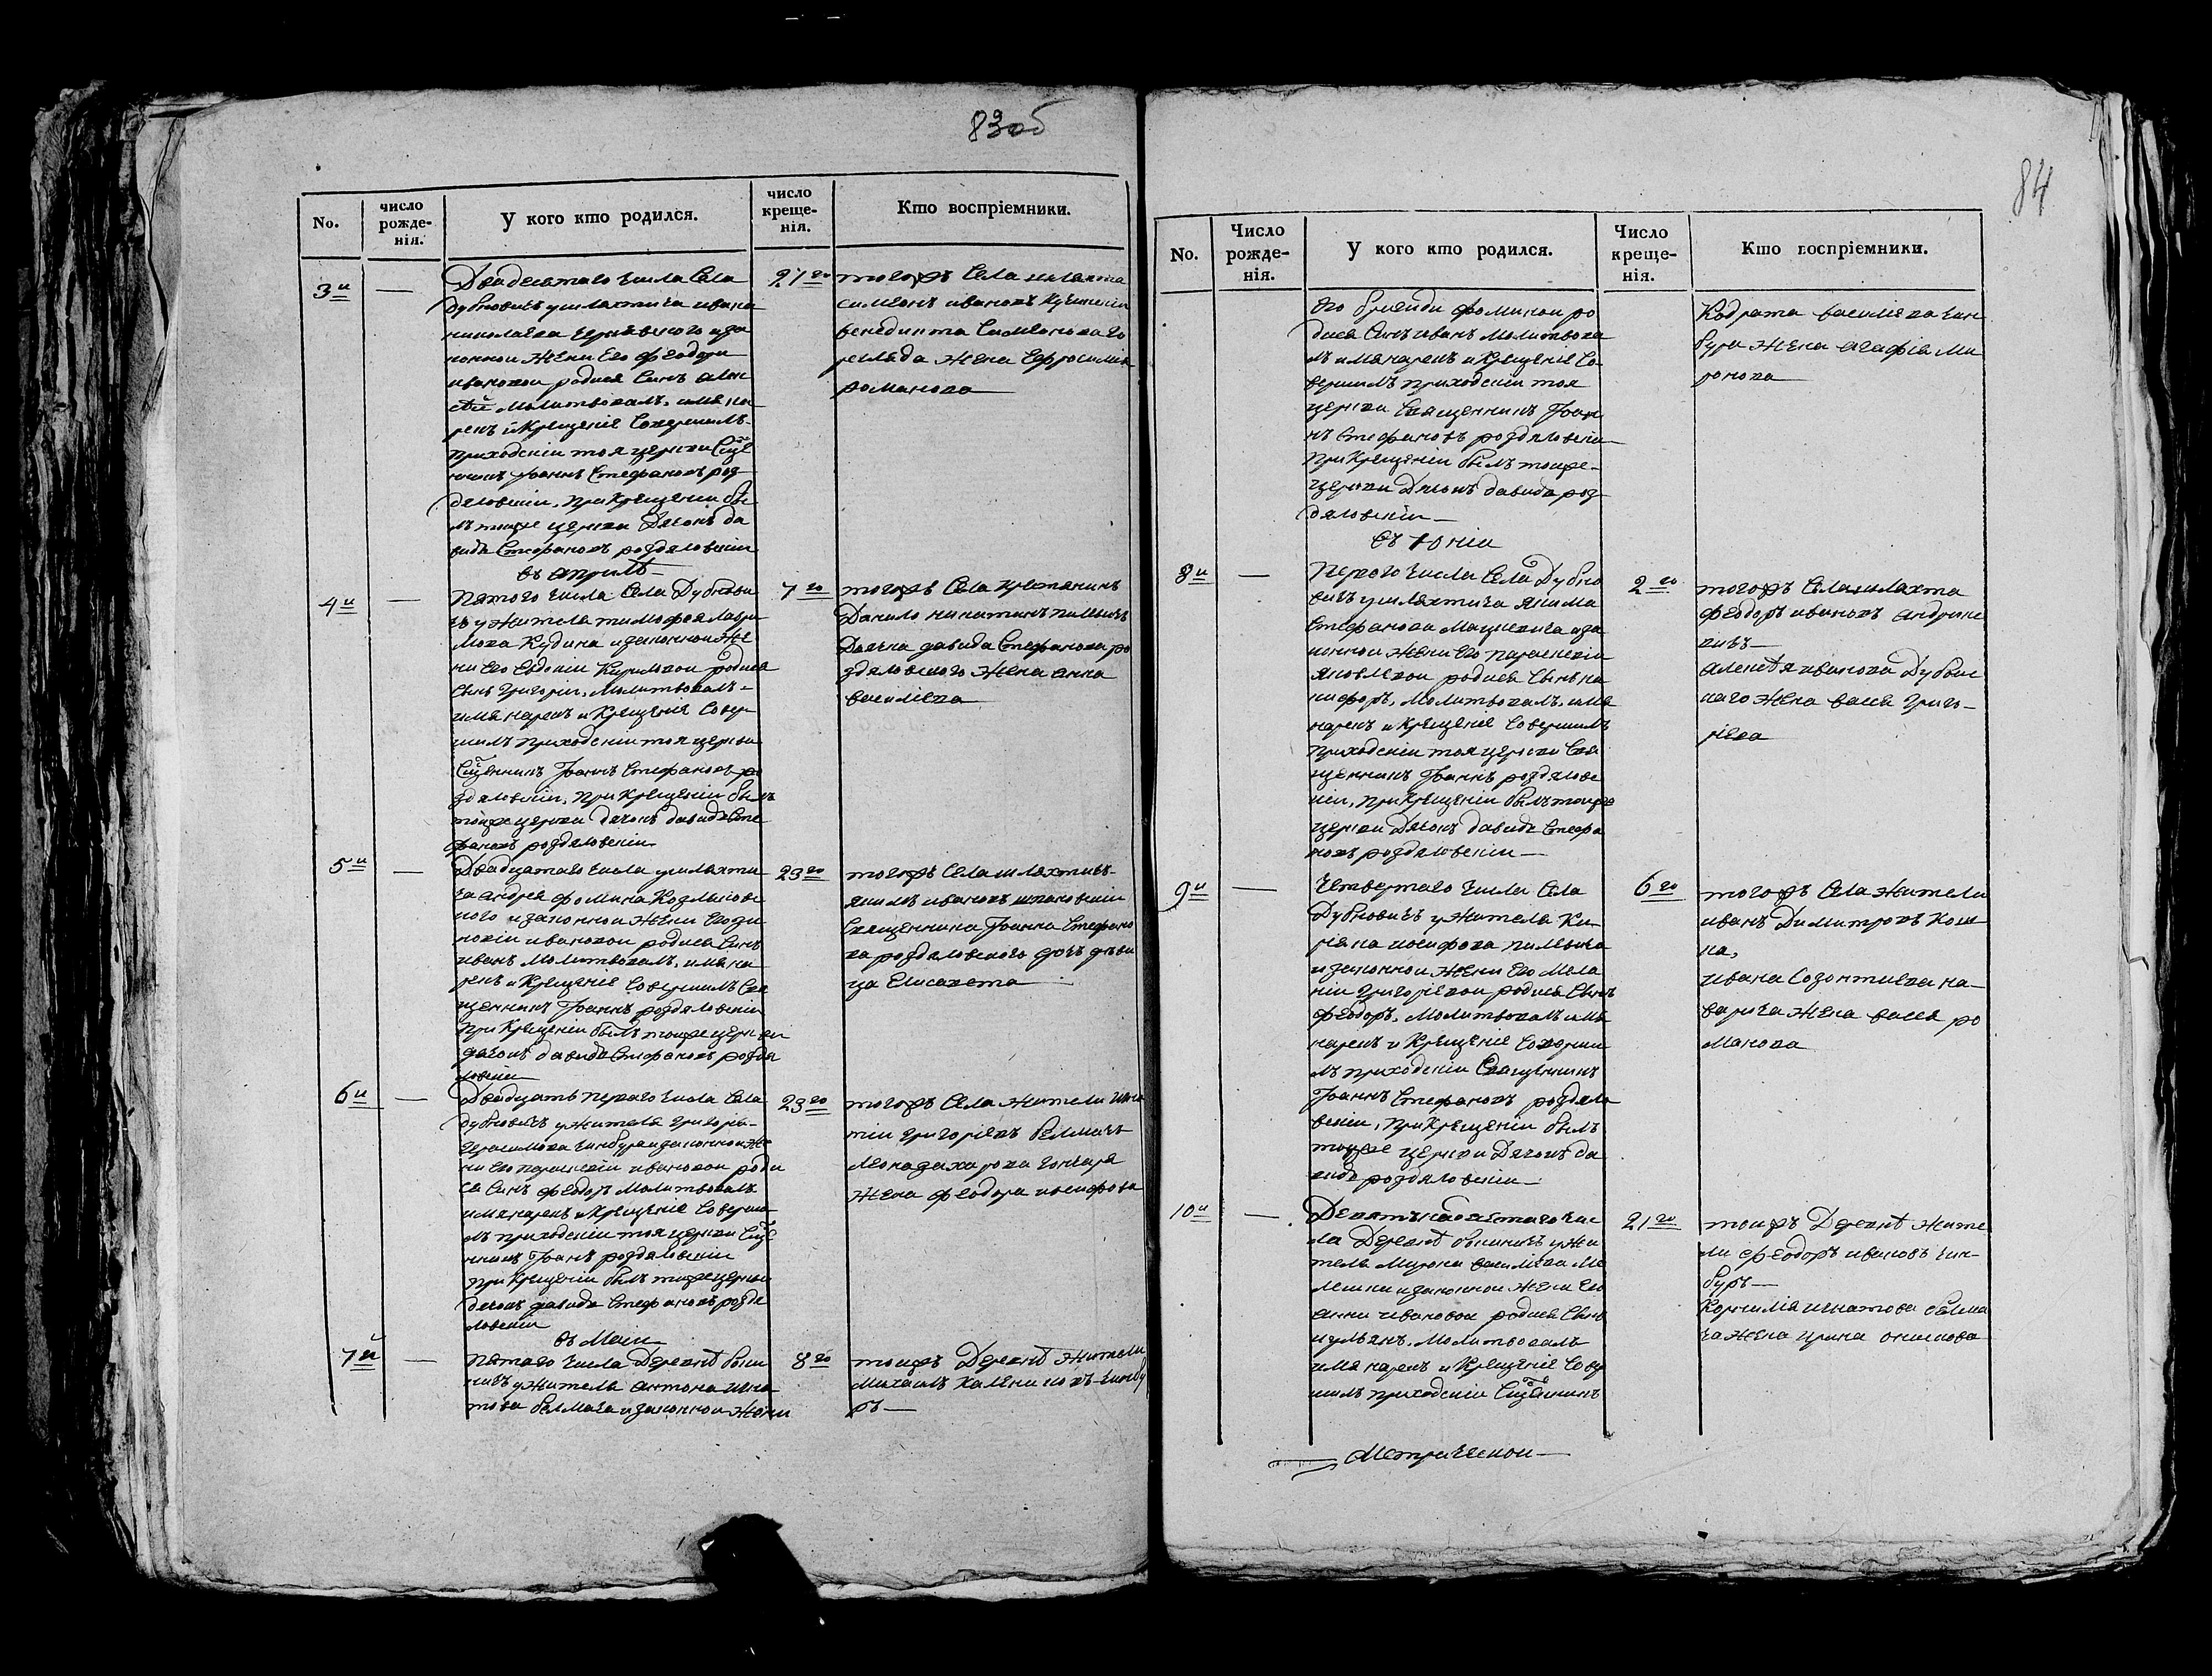 83об
No.
число рожде-нія.
У кого кто родился.
число креще-нія.
Кто воспріемники.
3й
—
Двадесятаго числа села
дубновичъ у шляхтича ивана
николаева
конной жени его феодори
ивановой родися синъ алек
сѣй молитвовалъ, имя на
рекъ и крещеніе совершилъ
приходскій тоя церкви сщ҃е
нникъ Іоаннъ Стефановъ роз
дяловскій, при крещеніи бы
лъ тоиже церкви дячокъ да
видъ Стефановъ роздяловскій
27го
тогожъ села шляхта
симеонъ ивановъ
венедикта симеонова
жена Евфросинія
романова
въ априлѣ
4й
—
Пятого числа села Дубнови
чъ у жителя тимофея лаври
нова Кудина и законной же
ни его Евдокіи Кириловой родися
синъ григорій, молитвовалъ
имя нарекъ и крещеніе совер
шилъ приходскій тоя церкви
Сщ҃енникъ Іоаннъ Стефановъ ро
здяловскій, при крещеніи былъ
тоиже церкви дячокъ давидъ Сте
фановъ роздяловскій
7го
тогожъ села крестянинъ
Данило никитинъ
Дячка давида Стефанова ро
здяловского жена анна
василіева
5й
—
Двадцатаго числа у шляхти
ча андрея фомина Козляковс
кого и законной жени его
ивановой родися синъ
иванъ молитвовалъ, имя на
рекъ и крещеніе совершилъ Свя
щенникъ Іоаннъ роздяловскій
при крещеніи былъ тоиже церкви
дячокъ давидъ Стефановъ роздя
ловскій
23го
тогожъ села шляхтичъ
якимъ ивановъ
Священника Іоанна Стефано
ва роздяловского дочъ дѣви
ца Елисавета
6й
—
Двадцать перваго числа села
дубновичъ у жителя григорія
герасимова чинбура и законной же
ни его параскевіи ивановой роди
ся синъ феодоръ молитвовалъ
имя нарекъ и крещеніе соверши
лъ приходскій тоя церкви сщ҃е
нникъ Іоанъ роздяловскій
при крещеніи былъ тоиже церкви
дячокъ давидъ Стефановъ роздя
ловскій
23го
тогожъ села жители игна
тій григоріевъ
захарова гончара
жена феодора иосифова
въ Маіи
7й
—
пятаго числа деревнѣ
у жителя антона игна
това белмача и законной жени
8го
тоижъ деревнѣ жители
Михаилъ чинбу
ръ—
84
No.
Число рожде-нія.
У кого кто родился.
Число креще-нія.
Кто воспріемники.
его фоминой ро
дися синъ иванъ молитвова
лъ имя нарекъ и крещеніе со-
вершилъ приходскій тоя
церкви Священникъ Іоан
нъ Стефановъ роздяловскій
при крещеніи былъ тоиже-
церкви дячокъ давидъ роз
дяловскій—
Кодрата василіева чин
бура жена агафія ми
ронова
въ Юніи
8й
—
Перваго числа села Дубно
вичъ у шляхтича якима
Стефанова Мацкевича и за
конной жени его параскевіи
яковлевой родися синъ ни
кифоръ, молитвовалъ, имя
нарекъ и крещеніе совершилъ
приходскій тоя церкви Свя
щенникъ Іоаннъ роздяловс
кій, при крещеніи былъ тоиже
церкви дячокъ давидъ Стефа
новъ роздяловскій—
2го
тогожъ села шляхта
феодоръ ивановъ
алексѣя иванова
жена васса григо-
ріева
9й
—
Четвертаго числа села
Дубновичъ у жителя Ки-
ріяна иосифова
и законной жени его мела
ніи григоріевой родися синъ
феодоръ, молитвовалъ имя
нарекъ и крещеніе соверши
лъ приходскій Священникъ
Іоаннъ Стефановъ роздяло
вскій, при крещеніи былъ
тоиже церкви дячокъ да
видъ роздяловскій—
6го
тогожъ села жители
иванъ Димитровъ
ивана Созонтиева
жена васса ро
манова
10й
—
Девятьнадцетаго чис
ла деревнѣ у жи
теля василіева
и законной жени его
анни ивановой родися синъ
иулянъ, молитвовалъ
имя нарекъ и крещеніе совер
шилъ приходскій сщ҃енникъ
21го
тоижъ деревнѣ жите
ли феодоръ ивановъ чин-
буръ—
Корнилія игнатова белма
ча жена ирина
Метрической—